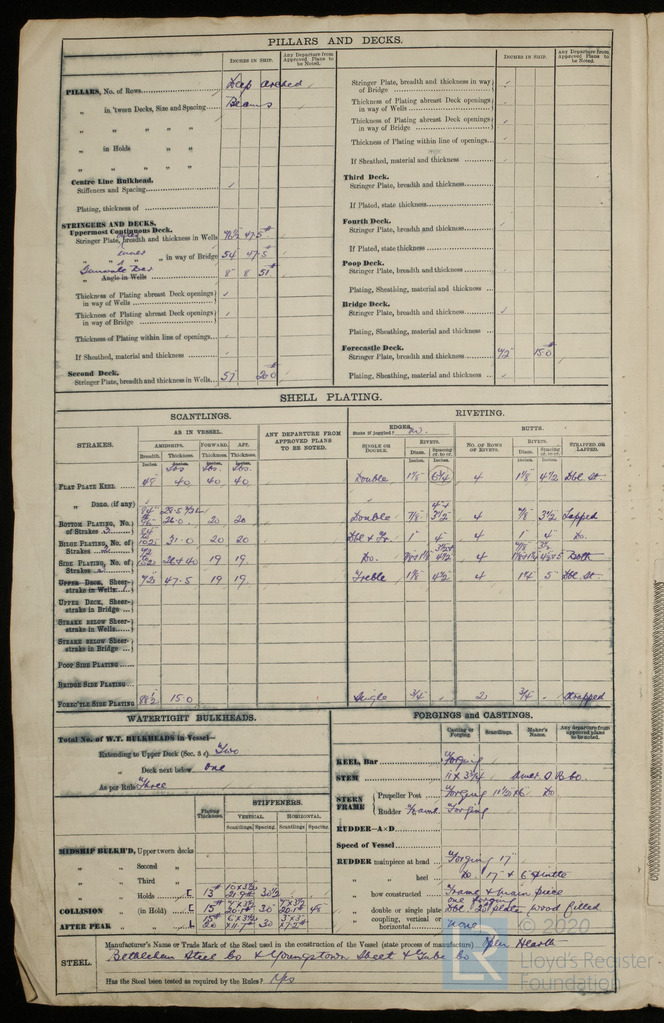 PILLARS AND DECKS.
INCHES IN SHIP.
Any Departure from Approved Plans to be Noted.
PILLARS, No. of Rows Deep arched
„ in 'tween Decks, Size and Spacing Beams
„ „ „ „
„ in Holds „ „
„ „ „ „
Centre Line Bulkhead.
Stiffeners and Spacing
Plating, thickness of
STRINGERS AND DECKS.
Uppermost Continuous Deck.
Stringer Plate, breadth and thickness in Wells 47.5#
„ „ „ „ in way of Bridge 54 47.5#
Gunwale Bar
„ Angle in Wells 8 8 51#
Thickness of Plating abreast Deck openings in way of Wells
Thickness of Plating abreast Deck openings in way of Bridge
Thickness of Plating within line of openings
If Sheathed, material and thickness
Second Deck.
Stringer Plate, breadth and thickness in Wells 57 20.0#
INCHES IN SHIP.
Any Departure from Approved Plans to be Noted.
Stringer Plate, breadth and thickness in way of Bridge
Thickness of Plating abreast Deck openings in way of Wells
Thickness of Plating abreast Deck openings in way of Bridge
Thickness of Plating within line of openings
If Sheathed, material and thickness
Third Deck.
Stringer Plate, breadth and thickness
If Plated, state thickness
Fourth Deck.
Stringer Plate, breadth and thickness
If Plated, state thickness
Poop Deck.
Stringer Plate, breadth and thickness
Plating, Sheathing, material and thickness
Bridge Deck.
Stringer Plate, breadth and thickness
Plating, Sheathing, material and thickness
Forecastle Deck.
Stringer Plate, breadth and thickness 42 15.0#
Plating, Sheathing, material and thickness
SHELL PLATING.
SCANTLINGS. RIVETING.
STRAKES. AS IN VESSEL. ANY DEPARTURE FROM APPROVED PLANS TO BE NOTED. EDGES. BUTTS.
State if joggled? No.
AMIDSHIPS. FORWARD. AFT. SINGLE OR DOUBLE. RIVETS. NO. OF ROWS OF RIVETS. RIVETS. STRAPPED OR LAPPED.
Breadth. Thickness. Thickness. Thickness. Diam. Spacing cr. to cr. Diam. Spacing cr. to cr.
Inches. lbs lbs lbs. Inches. Inches. Inches. Inches.
FLAT PLATE KEEL 48 40 40 40 Double 1 1/8 6 3/4 4 1 1/8 4 1/2 Dbl. St.
„ DBLG. (if any)
BOTTOM PLATING, No. of Strakes 3 26.0 20 20 Double 7/8 3 1/2 4 7/8 3 1/2 Lapped
BILGE PLATING, No. of Strakes 2 31.0 20 20 Dbl & Tr. 1" 4 4 1 4 Do.
SIDE PLATING, No. of Strakes 19 19 Do. 4 Both
UPPER DECK, Sheer-strake in Wells 72 47.5 19 19 Treble 1 1/8 4 1/2 4 1 1/4 5 Dbl. St.
UPPER DECK, Sheer-strake in Bridge
STRAKE BELOW Sheer-strake in Wells
STRAKE BELOW Sheer-strake in Bridge
POOP SIDE PLATING
BRIDGE SIDE PLATING
FOREC'TLE SIDE PLATING 15.0 Single 3/4 2 3/4 Strapped
WATERTIGHT BULKHEADS.
Total No. of W.T. BULKHEADS in Vessel—
Extending to Upper Deck (Sec. 3 c) Two
„ Deck next below One
As per Rule Three
Plating Thickness. STIFFENERS.
VERTICAL. HORIZONTAL.
Scantlings. Spacing. Scantlings. Spacing.
MIDSHIP BULKH'D, Upper tween decks
„ „ Second „
„ „ Third „
„ „ Holds 13# 30 1/2
COLLISION „ (in Hold) 15# 30 48
AFTER PEAK „ „ 30
FORGINGS AND CASTINGS.
Casting or Forging. Scantlings. Maker's Name. Any departure from approved plans to be noted.
KEEL, Bar Forging
STEM
STERN FRAME Propeller Post Forging Do
Rudder „ Forging
RUDDER—A×D
Speed of Vessel
RUDDER mainpiece at head Forging 17"
„ „ heel Do. 17" & 6 pintle
„ how constructed Frame & main piece one forging
„ double or single plate Dbl. wood filled
„ coupling, vertical or horizontal none
STEEL. Manufacturer's Name or Trade Mark of the Steel used in the construction of the Vessel (state process of manufacture) Open Hearth
Bethlehem Steel Co & Youngstown Sheet & Tube Co
Has the Steel been tested as required by the Rules? Yes
© 2020
Lloyd's Register
Foundation